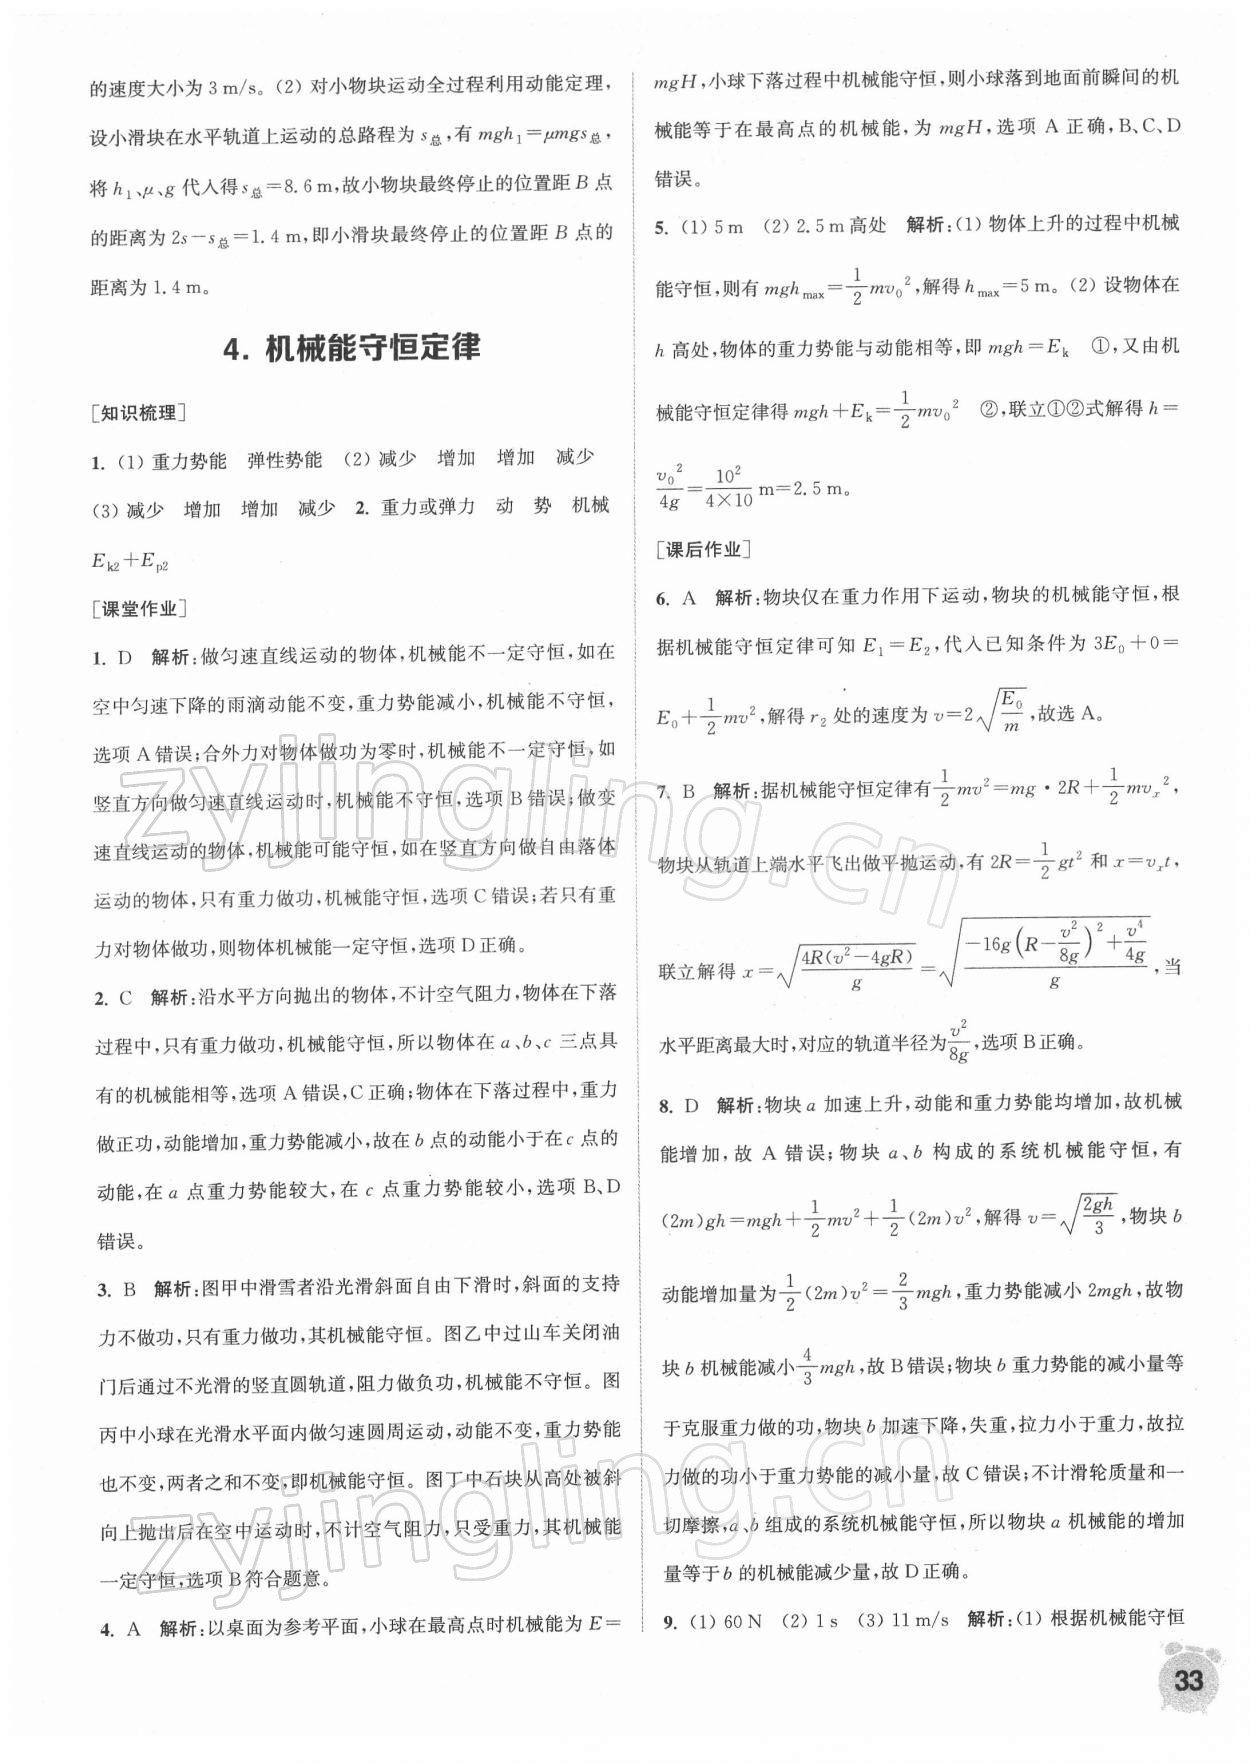 的速度大小为 3 m/s。(2) 对小物块运动全过程利用动能定理,
设小滑块在水平轨道上运动的总路程为 s总,有 mgh₁=μmgs总,
将 h₁、μ、g 代入得 s总=8.6 m,故小物块最终停止的位置距 B 点
的距离为 2s-s总=1.4 m,即小滑块最终停止的位置距 B 点的
距离为 1.4 m。
4. 机械能守恒定律
[知识梳理]
1. (1) 重力势能 弹性势能 (2) 减少 增加 增加 减少
(3) 减少 增加 增加 减少 2. 重力或弹力 动 势 机械
Eₖ₂+Eₚ₂
[课堂作业]
1. D 解析:做匀速直线运动的物体,机械能不一定守恒,如在
空中匀速下降的雨滴动能不变,重力势能减小,机械能不守恒,
选项 A 错误;合外力对物体做功为零时,机械能不一定守恒,如
竖直方向做匀速直线运动时,机械能不守恒,选项 B 错误;做变
速直线运动的物体,机械能可能守恒,如在竖直方向做自由落体
运动的物体,只有重力做功,机械能守恒,选项 C 错误;若只有重
力对物体做功,则物体机械能一定守恒,选项 D 正确。
2. C 解析:沿水平方向抛出的物体,不计空气阻力,物体在下落
过程中,只有重力做功,机械能守恒,所以物体在 a、b、c 三点具
有的机械能相等,选项 A 错误,C 正确;物体在下落过程中,重力
做正功,动能增加,重力势能减小,故在 b 点的动能小于在 c 点的
动能,在 a 点重力势能较大,在 c 点重力势能较小,选项 B、D
错误。
3. B 解析:图甲中滑雪者沿光滑斜面自由下滑时,斜面的支持
力不做功,只有重力做功,其机械能守恒。图乙中过山车关闭油
门后通过不光滑的竖直圆轨道,阻力做负功,机械能不守恒。图
丙中小球在光滑水平面内做匀速圆周运动,动能不变,重力势能
也不变,两者之和不变,即机械能守恒。图丁中石块从高处被斜
向上抛出后在空中运动时,不计空气阻力,只受重力,其机械能
一定守恒,选项 B 符合题意。
4. A 解析:以桌面为参考平面,小球在最高点时机械能为 E=
mgH,小球下落过程中机械能守恒,则小球落到地面前瞬间的机
械能等于在最高点的机械能,为 mgH,选项 A 正确,B、C、D
错误。
5. (1) 5 m (2) 2.5 m 高处 解析:(1) 物体上升的过程中机械
能守恒,则有 mghmax=1/2 mv₀²,解得 hmax=5 m。(2) 设物体在
h 高处,物体的重力势能与动能相等,即 mgh=Eₖ ①,又由机
械能守恒定律得 mgh+Eₖ=1/2 mv₀² ②,联立①②式解得 h=
v₀²/4g=10²/(4×10) m=2.5 m。
[课后作业]
6. A 解析:物块仅在重力作用下运动,物块的机械能守恒,根
据机械能守恒定律可知 E₁=E₂,代入已知条件为 3E₀+0=
E₀+1/2 mv²,解得 r₂ 处的速度为 v=2√(E₀/m),故选 A。
7. B 解析:据机械能守恒定律有 1/2 mv²=mg·2R+1/2 mvₓ²,
物块从轨道上端水平飞出做平抛运动,有 2R=1/2 gt² 和 x=vₓt,
联立解得 x=√(4R(v²-4gR)/g)=√((-16g(R-v²/8g)²+v⁴/4g)/g),当
水平距离最大时,对应的轨道半径为 v²/8g,选项 B 正确。
8. D 解析:物块 a 加速上升,动能和重力势能均增加,故机械
能增加,故 A 错误;物块 a、b 构成的系统机械能守恒,有
(2m)gh=mgh+1/2 mv²+1/2 (2m)v²,解得 v=√(2gh/3),物块 b
动能增加量为 1/2 (2m)v²=2/3 mgh,重力势能减小 2mgh,故物
块 b 机械能减小 4/3 mgh,故 B 错误;物块 b 重力势能的减小量等
于克服重力做的功,物块 b 加速下降,失重,拉力小于重力,故拉
力做的功小于重力势能的减小量,故 C 错误;不计滑轮质量和一
切摩擦,a、b 组成的系统机械能守恒,所以物块 a 机械能的增加
量等于 b 的机械能减少量,故 D 正确。
9. (1) 60 N (2) 1 s (3) 11 m/s 解析:(1) 根据机械能守恒
33
zyjingling.cn
zyjingling.cn